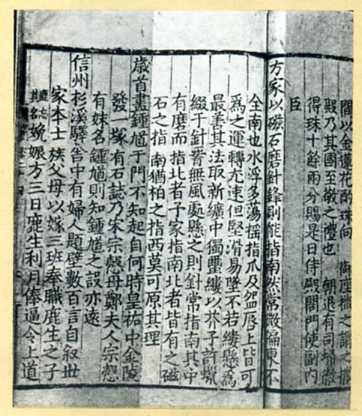 閤以金蓮花酌珠向 御座撒之謂之撒
殿乃其國至敬之禮也 朝退有司掃徹
得珠十餘兩分賜是日侍殿閤門使副内
臣
方家以磁石磨針鋒則能指南然常微偏東不
全南也水浮多蕩搖指爪及盌脣上皆可
爲之運轉尤速但堅滑易墜不若縷懸爲
最善其法取新纊中獨蠒縷以芥子許蠟
綴于針腰無風處懸之則針常指南其中
有磨而指北者予家指南北者皆有之磁
石之指南猶柏之指西莫可原其理
歲首畫鍾馗于門不知起自何時皇祐中金陵
發一塚有石誌乃宋宗慤母鄭夫人宗慤
有妹名鍾馗則知鍾馗之設亦遠
信州杉溪驛舍中有婦人題壁數百言自叙世
家本士族父母以嫁三班奉職鹿生之子
鹿忘其名娩娠方三日鹿生利月俸逼令上道